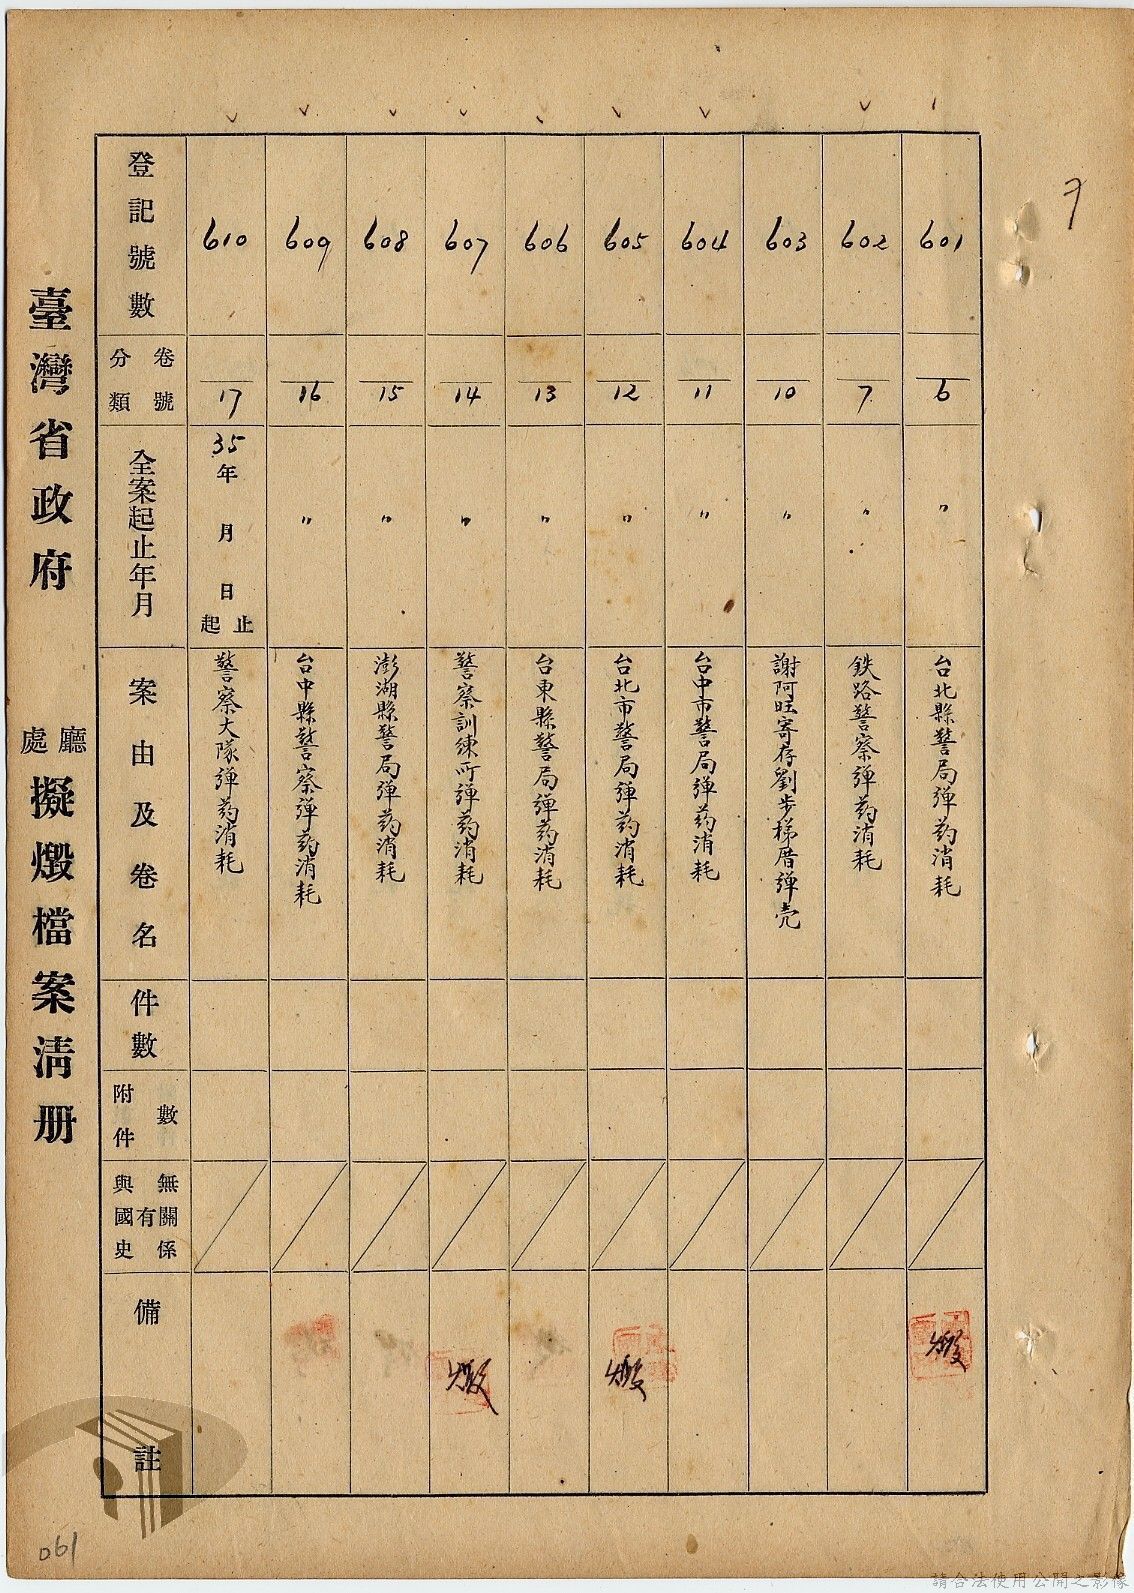 臺灣省政府 廳處擬燬檔案清册
登記號數
601
602
603
604
605
606
607
608
609
610
分類卷號
6
7
10
11
12
13
14
15
16
17
全案起止年月
〃
〃
〃
〃
〃
〃
〃
〃
〃
35年 月 日起止
案由及卷名
台北縣警局弹药消耗
鉄路警察弹药消耗
謝阿旺寄存劉步梯厝弹壳
台中市警局弹药消耗
台北市警局弹药消耗
台東縣警局弹药消耗
警察訓練所弹药消耗
澎湖縣警局弹药消耗
台中縣警察弹药消耗
警察大隊弹药消耗
件數
附件數
與國史有無關係
備註
燬
燬
燬
061
請合法使用公開之影像